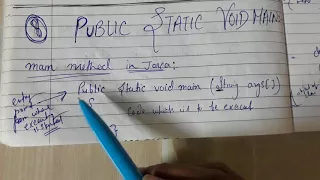 PUBLIC STATIC VOID MAIN
main method in Java:
Public static void main (String args[])
{
code which is to be execut
}
entry
point
from where